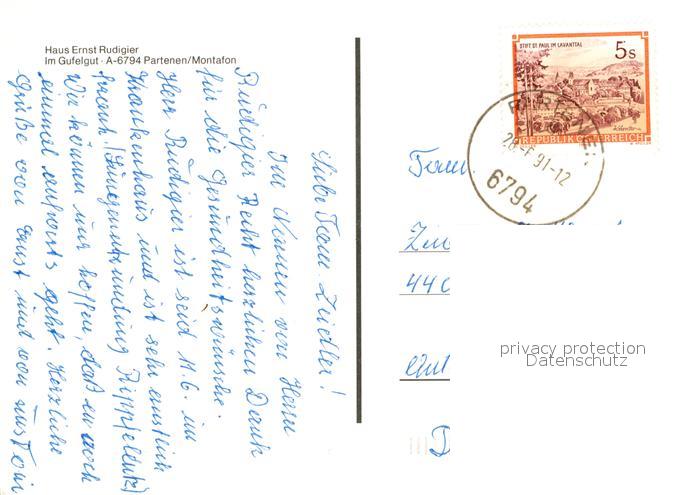 Haus Ernst Rudigier
Im Gufelgut · A-6794 Partenen/Montafon
Liebe Fam. Zeidler!
Im Namen von Herrn
Rudigier Recht herzlichen Dank
für die Gesundheitswünsche.
Herr Rudigier ist seid 11.6. im
Krankenhaus und ist sehr ernstlich
krank (Lungenentzündung Rippfellentz)
Wir können nur hoffen, daß er noch
einmal aufwärts geht. Herzliche
Grüße von Ernst und von
STIFT ST. PAUL IM LAVANTTAL
5s
REPUBLIK ÖSTERREICH
PARTENEN
91-12
6794
Fam.
440
privacy protection
Datenschutz
D